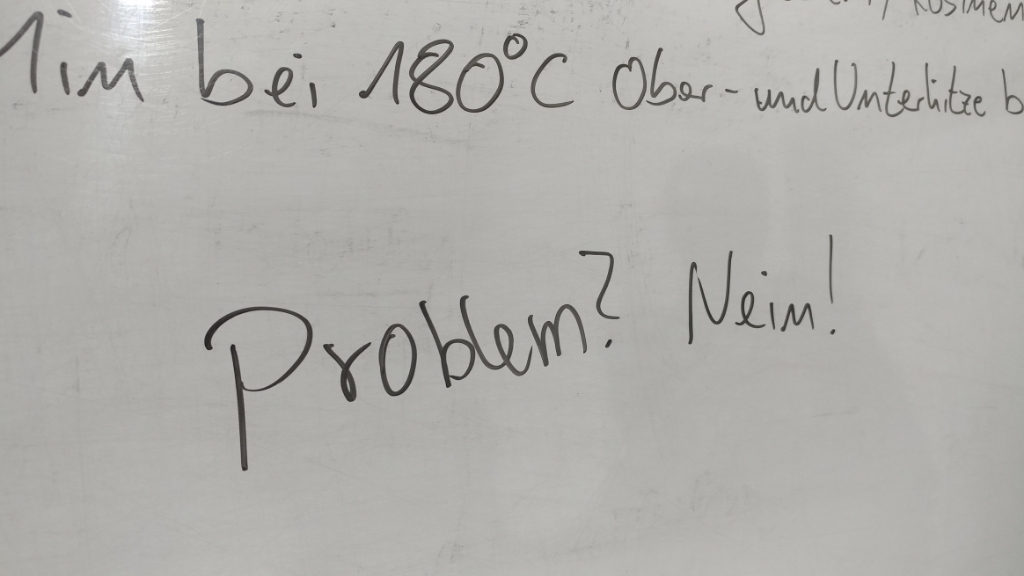 Min bei 180°C Ober- und Unterhitze
Problem? Nein!